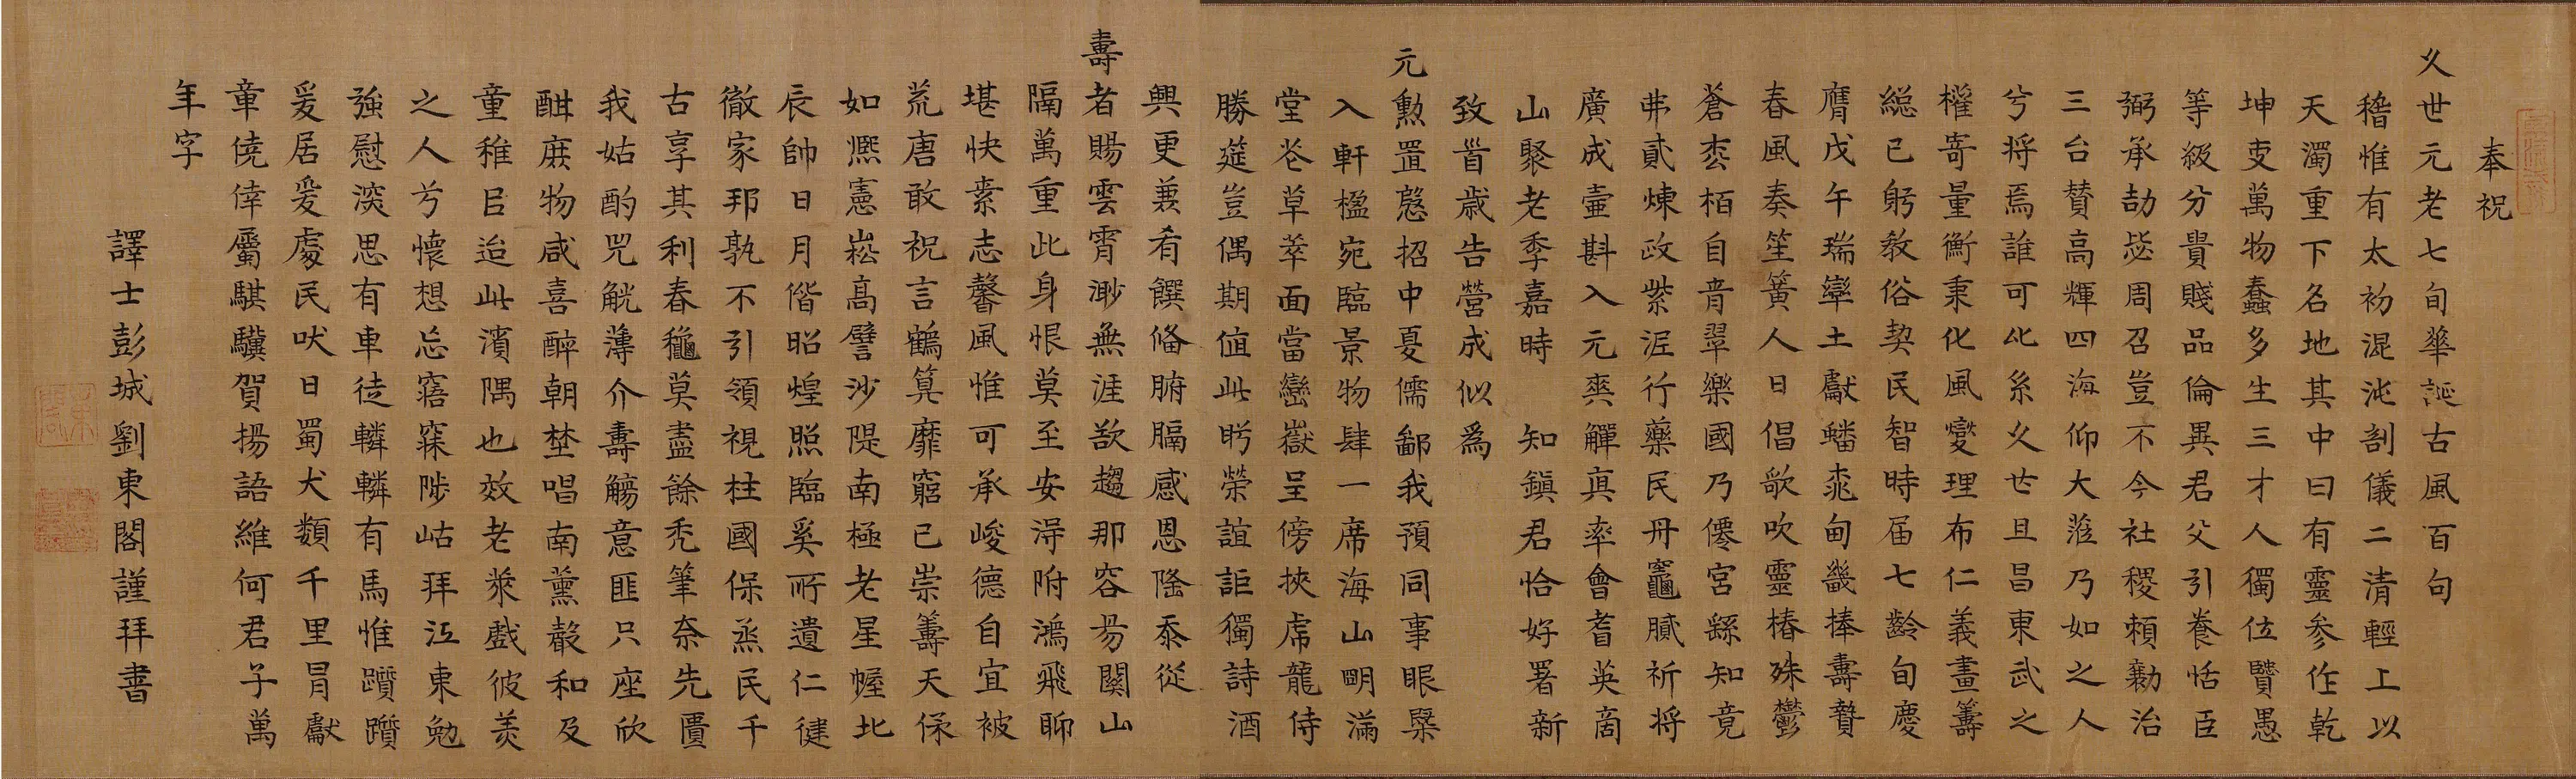 奉祝
乆世元老七旬華誕古風百句
稽惟有太初混沌剖儀二清輕上以
天濁重下名地其中曰有靈參作乾
坤叓萬物蠢多生三才人獨位贒愚
等級分貴賤品倫異君父引養恬臣
弼承劼毖周召豈不今社稷賴勷治
三台賛高輝四海仰大蒞乃如之人
兮将焉誰可比系乆世且昌東武之
權寄量衡秉化風變理布仁義畫籌
総已躬敎俗契民智時届七齡旬慶
膺戊午瑞率土獻蟠桃甸畿捧壽贄
春風奏笙簧人日倡歌吹靈椿殊鬱
蒼枩栢自音翠樂國乃僊宮繇知竟
弗貳煉政紫涯行藥民丹竈膩祈将
廣成壷斟入元爽觶眞率會耆英啇
山聚老季嘉時　知鎭君恰好署新
致首歳告營成似爲
元勲罡慇招中夏儒鄙我預同事眼槼
入軒楹宛臨景物肆一席海山朙滿
堂芲草萃面當巒嶽呈傍挾席龍侍
勝筵豈偶期値此盻榮誼詎獨詩酒
興更兼肴饌偹腑膈感恩隆忝従
壽者賜雲霄渺無涯欲趨那容昜闗山
隔萬重此身恨莫至安淂附鴻飛聊
堪快素志馨風惟可承峻德自宜被
荒唐敢祝言鶴筭靡窮已崇籌天保
如凞憲崧髙譬沙隄南極老星幄北
辰帥日月偕昭煌照臨奚所遺仁徤
徹家邦孰不引領視柱國保烝民千
古享其利春龝莫盡餘禿筆奈先匱
我姑酌兕觥薄介壽觴意匪只座欣
酣庶物咸喜醉朝埜唱南薰殽和及
童稚臣迨此濱隅也效老萊戲彼美
之人兮懷想忘寤寐陟岵拜江東勉
強慰淡思有車徒轔轔有馬惟躓躓
爰居爰處民吠日蜀犬類千里冐獻
章僥倖屬騏驥賀揚語維何君子萬
年字
譯士彭城劉東閣謹拜書